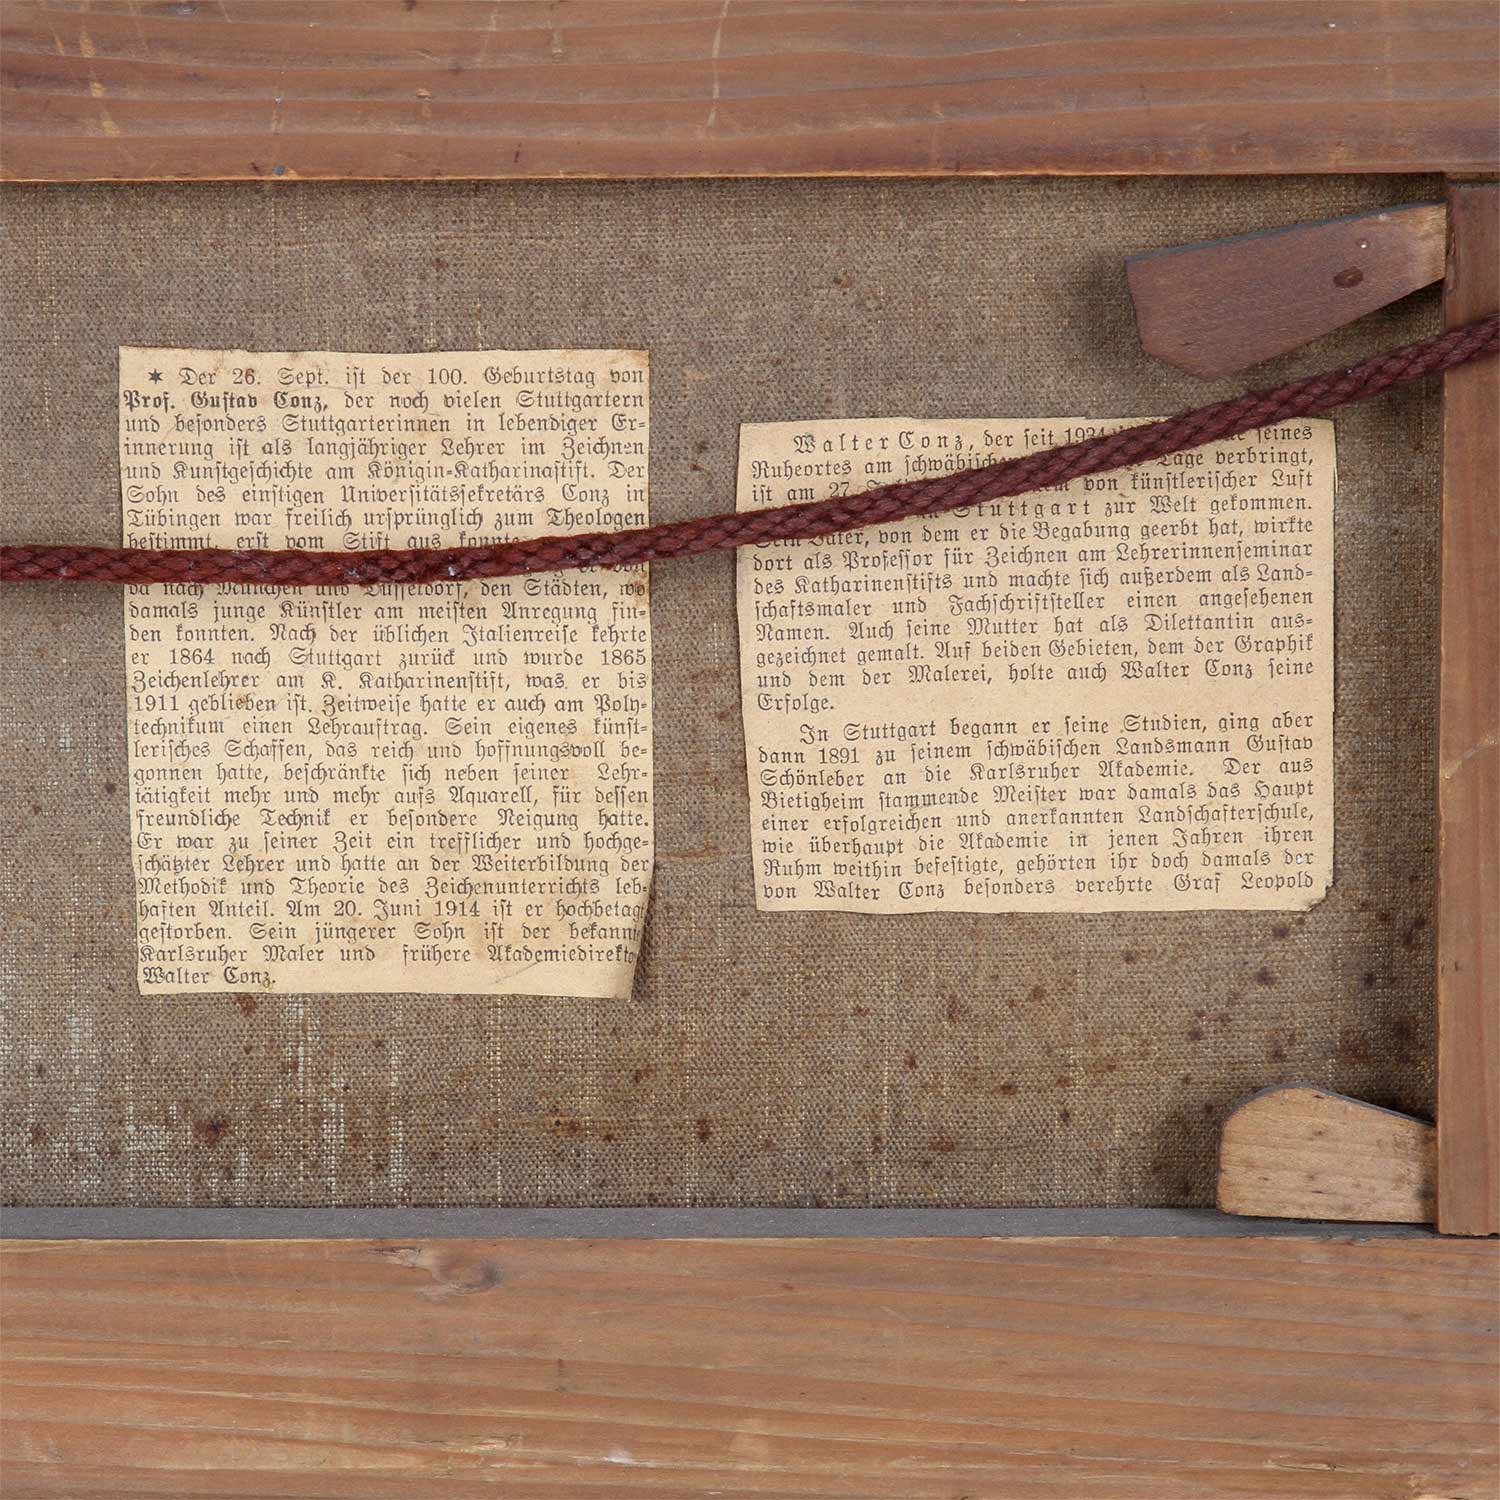 ✶ Der 26. Sept. ist der 100. Geburtstag von
Prof. Gustav Conz, der noch vielen Stuttgartern
und besonders Stuttgarterinnen in lebendiger Er-
innerung ist als langjähriger Lehrer im Zeichnen
und Kunstgeschichte am Königin-Katharinastift. Der
Sohn des einstigen Universitätssekretärs Conz in
Tübingen war freilich ursprünglich zum Theologen
bestimmt, erst vom Stift aus konnte
von
da nach München und Düsseldorf, den Städten, wo
damals junge Künstler am meisten Anregung fin-
den konnten. Nach der üblichen Italienreise kehrte
er 1864 nach Stuttgart zurück und wurde 1865
Zeichenlehrer am K. Katharinenstift, was er bis
1911 geblieben ist. Zeitweise hatte er auch am Poly-
technikum einen Lehrauftrag. Sein eigenes künst-
lerisches Schaffen, das reich und hoffnungsvoll be-
gonnen hatte, beschränkte sich neben seiner Lehr-
tätigkeit mehr und mehr aufs Aquarell, für dessen
freundliche Technik er besondere Neigung hatte.
Er war zu seiner Zeit ein trefflicher und hochge-
schätzter Lehrer und hatte an der Weiterbildung der
Methodik und Theorie des Zeichenunterrichts leb-
haften Anteil. Am 20. Juni 1914 ist er hochbetagt
gestorben. Sein jüngerer Sohn ist der bekannte
Karlsruher Maler und frühere Akademiedirektor
Walter Conz.
Walter Conz, der seit 1924 seines
Ruheortes am schwäbischen Tage verbringt,
ist am 27. von künstlerischer Luft
Stuttgart zur Welt gekommen.
Sein Vater, von dem er die Begabung geerbt hat, wirkte
dort als Professor für Zeichnen am Lehrerinnenseminar
des Katharinenstifts und machte sich außerdem als Land-
schaftsmaler und Fachschriftsteller einen angesehenen
Namen. Auch seine Mutter hat als Dilettantin aus-
gezeichnet gemalt. Auf beiden Gebieten, dem der Graphik
und dem der Malerei, holte auch Walter Conz seine
Erfolge.
In Stuttgart begann er seine Studien, ging aber
dann 1891 zu seinem schwäbischen Landsmann Gustav
Schönleber an die Karlsruher Akademie. Der aus
Bietigheim stammende Meister war damals das Haupt
einer erfolgreichen und anerkannten Landschafterschule,
wie überhaupt die Akademie in jenen Jahren ihren
Ruhm weithin befestigte, gehörten ihr doch damals der
von Walter Conz besonders verehrte Graf Leopold